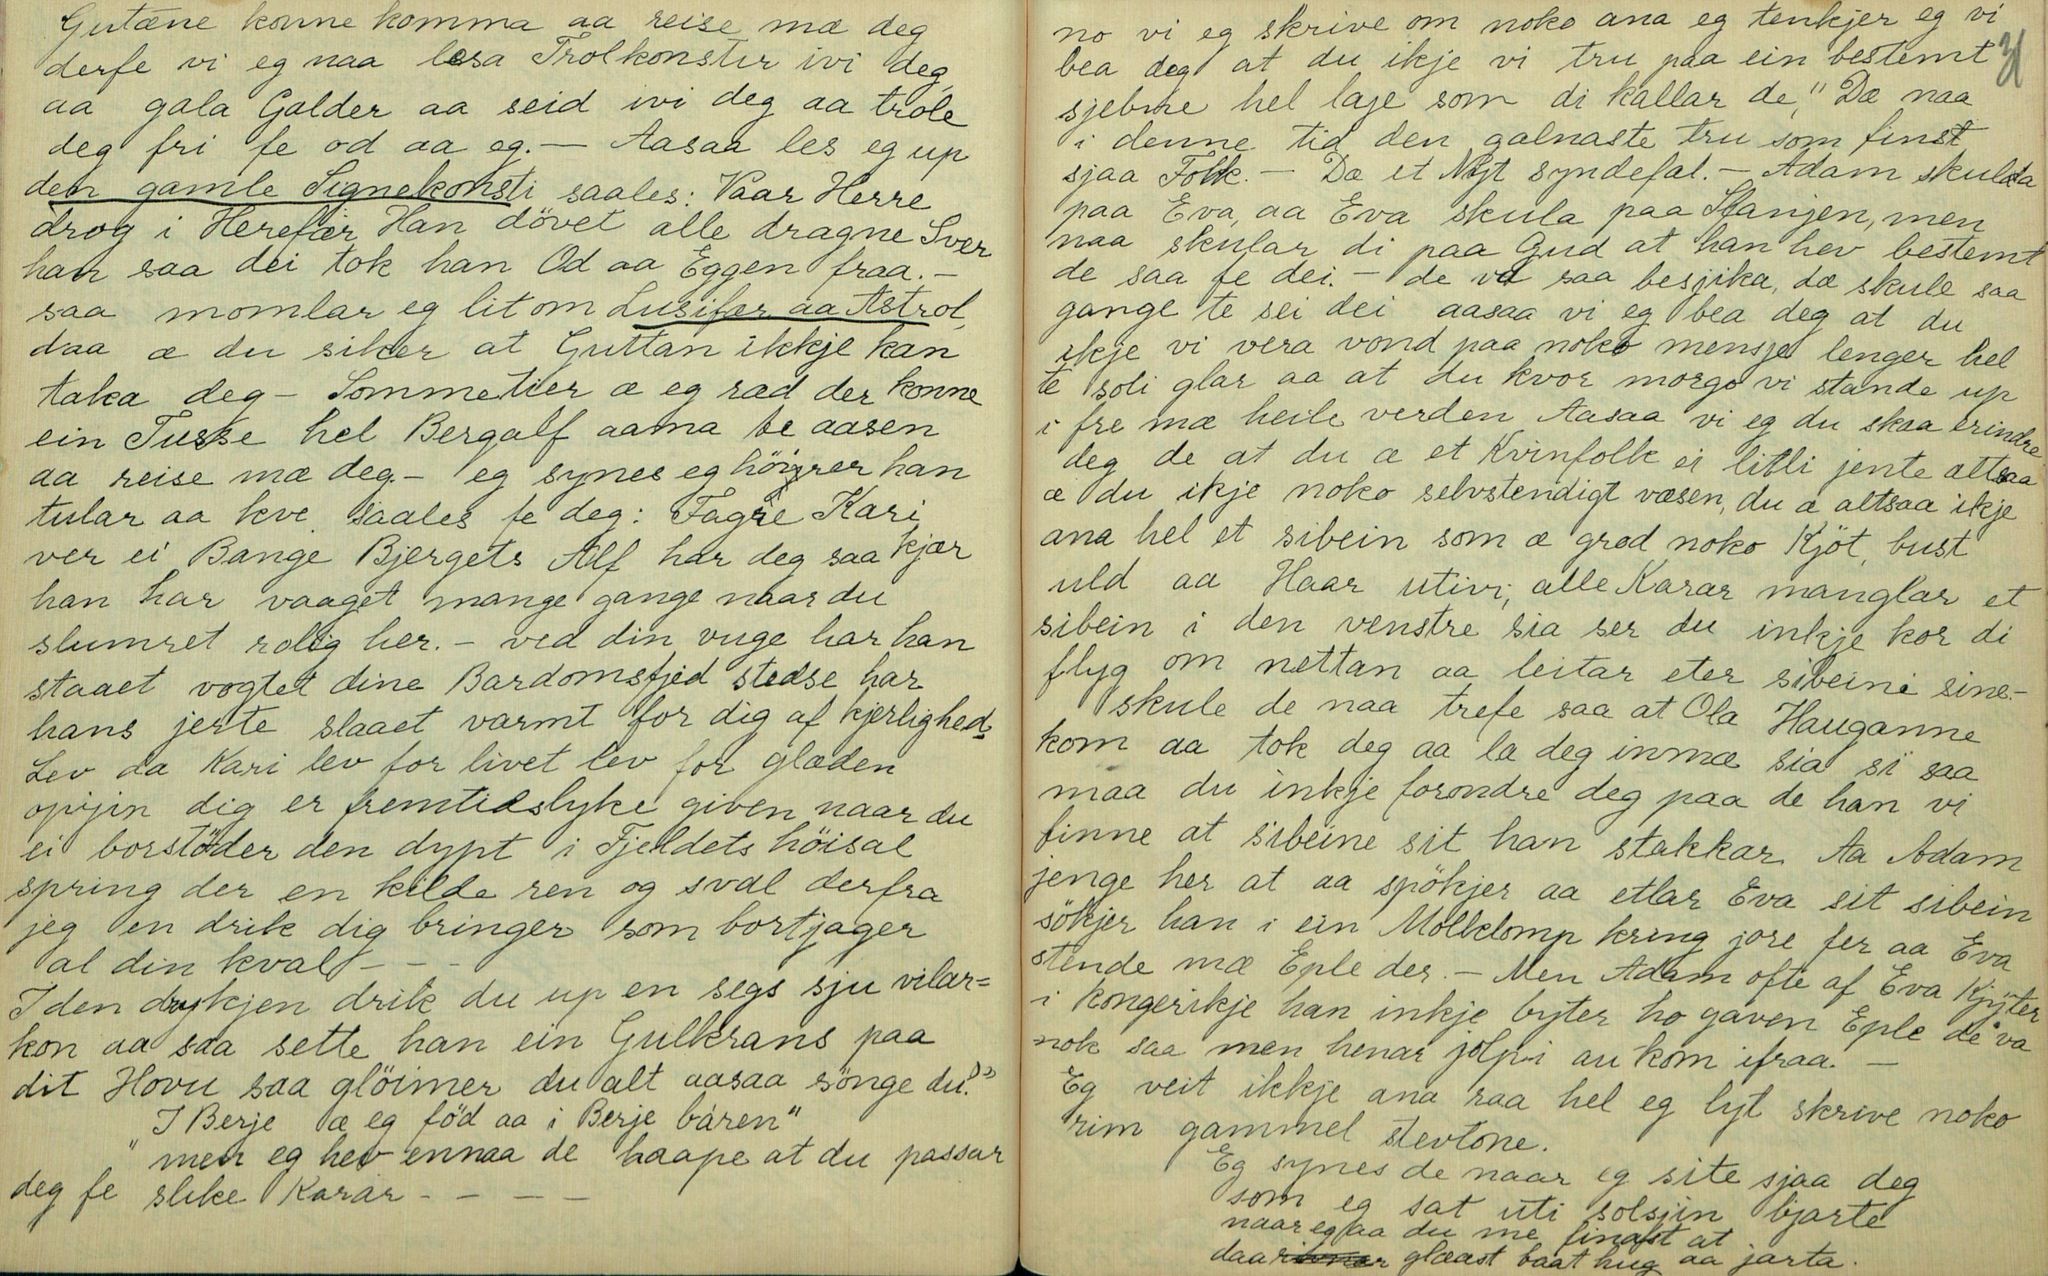 Gutæne konne komma aa reise mæ deg
derfe vi eg naa lesa Trolkonster ivi deg,
aa gala Galder aa seid ivi deg aa trole
deg fri fe od aa eg. — Aasaa les eg up
den gamle Signekonsti saales: Vaar Herre
drog i Herefær Han dövet alle dragne Sver
han saa dei tok han Od aa Eggen fraa. —
saa momlar eg lit om Lusifer aa Astrol,
daa æ du siker at Guttan ikkje kan
taka deg — Sommetier æ eg ræd der konne
ein Tusse hel Bergalf aama te aasen
aa reise mæ deg. — eg synes eg höirer han
tular aa kve saales fe deg: Fagre Kari
ver ei Bange Bjergets Alf har deg saa kjær
han har vaaget mange gange naar du
slumret rolig her. — ved din vuge har han
staaet vogtet dine Bardomsfjed stedse har
hans jerte slaaet varmt for dig af kjerlighed
Lev da Kari lev for livet lev for glæden
opijin dig er fremtidslyke given naar du
ei borstöder den dypt i Fjeldets höisal
spring der en kilde ren og sval derfra
jeg en drik dig bringer som bortjager
al din kval — - -
I den drykjen drik du up en segs sju vilar=
kon aa saa sette han ein Gulkrans paa
dit Hovu saa glöimer du alt aasaa sönge du:"
I Berje æ eg föd aa i Berje båren"
" men eg hev ennaa de haape at du passar
deg fe slike Karar - - - —
no vi eg skrive om noko ana eg tenkjer eg vi
bea deg at du ikje vi tru paa ein bestemt
sjebne hel laje som di kallar de," Dæ naa
i denne tid den galnaste tru som finst
sjaa Folk. — Dæ et Nyt syndefal. — Adam skulda
paa Eva, aa Eva skula paa Slanjen, men
naa skular di paa Gud at han hev bestemt
de saa fe dei. — de va saa besjika, dæ skule saa
gange te sei dei aasaa vi eg bea deg at du
ikje vi vera vond paa noko mensje lenger hel
te soli glar aa at du kvor morgo vi stande up
i fre mæ heile verden Aasaa vi eg du skaa erindre
deg de at du æ et Kvinfolk ei litli jente altsaa
æ du ikje noko selvstendigt væsen, du æ altsaa ikje
ana hel et sibein som æ grod noko Kjöt, bust
uld aa Haar utivi, alle Karar manglar et
sibein i den venstre sia ser du inkje kor di
flyg om nettan aa leitar eter sibeini sine —
skule de naa trefe saa at Ola Hauganne
kom aa tok deg aa la deg inmæ sia si saa
maa du inkje forondre deg paa de han vi
finne at sibeine sit han stakkar. Aa Adam
jenge her at aa spökjer aa etlar Eva sit sibein
sökjer han i ein Molklomp kring jore fer aa Eva
stende mæ Eple der. — Men Adam ofte af Eva Kjyter
i kongerikje han inkje byter ho gaven Eple de va
nok saa men henar jolpi au kom ifraa. —
Eg veit ikkje ana raa hel eg lyt skrive noko
rim gammel stevtone.
Eg synes de naar eg site sjaa deg
som eg sat uti solsjin bjarte
naar eg aa du me finast at
daa glæast baat hug aa jarta.